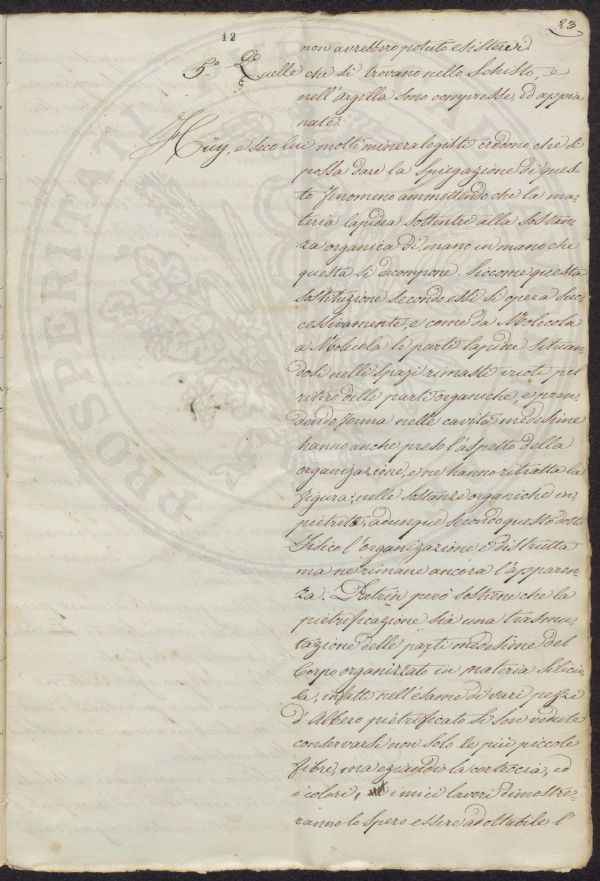 83
12
non avrebbero potuto esistervi.
5°. Quelle che si trovano nello Schisto, e
nell'Argilla sono compresse, ed appia
nate.
Haüy, e seco lui molti mineralogisti credono che si
possa dare la spiegazione di ques-
to fenomeno ammettendo che la ma-
teria lapidea sottentri alla sostan-
za organica di mano in mano che
questa si decompone. Siccome questa
sostituzione secondo essi si opera suc-
cessivamente, e come da Molecola
a Molecola le parti lapidee situan-
dosi nelli spazi rimasti vuoti pel
ritiro delle parti organiche, e pren-
dendo forma nelle cavità medesime
hanno anche preso l'aspetto della
organizazione, e ne hanno ritratta la
figura; nelle sostanze organiche im-
pietrite, adunque secondo questo dotto
Fisico l'organizazione è distrutta
ma ne rimane ancora l'apparen-
za. Patrin però sostiene che la
pietrificazione sia una trasmu-
tazione delle parti medesime del
Corpo organizzato in materia silicio-
sa; infatti nell'esame di vari pezzi
d'Albero pietrificato si son vedute
conservarsi non solo le più piccole
fibre, ma eziandio la corteccia, ed
i colori, i miei lavori dimostre-
ranno lo spero essere adottabile l'
PROSPERITATI PUBLICAE